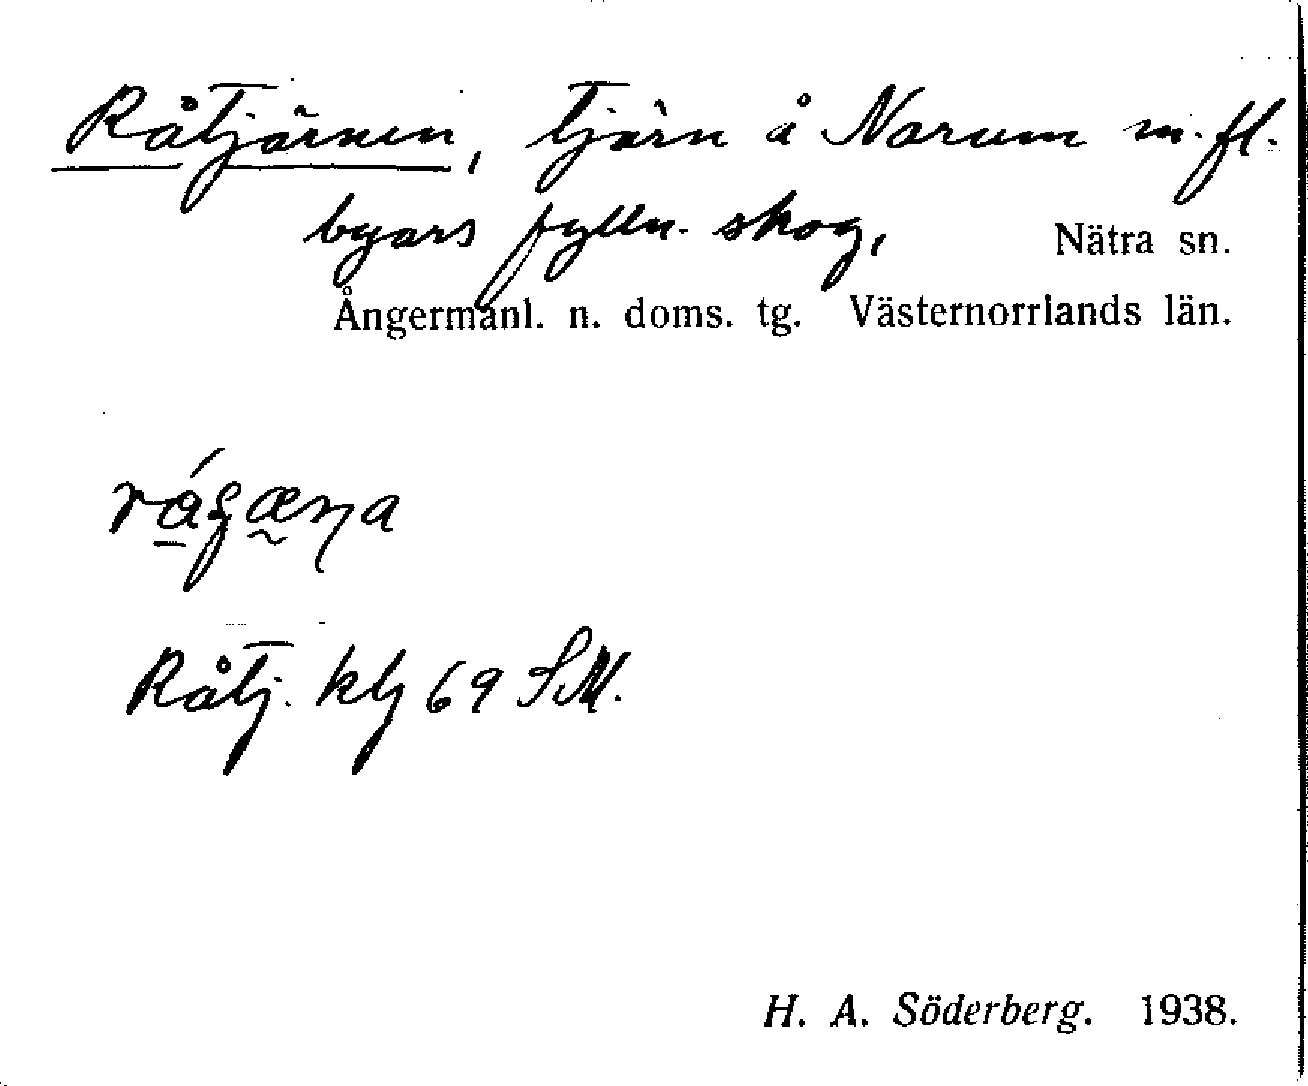 Råtjärnen, tjärn å Norum m. fl.
byars fylln. skog, Nätra sn.
Ångermanl. n. doms. tg. Västernorrlands län.
Råtj. ktj 69 SM.
H. A. Söderberg. 1938.